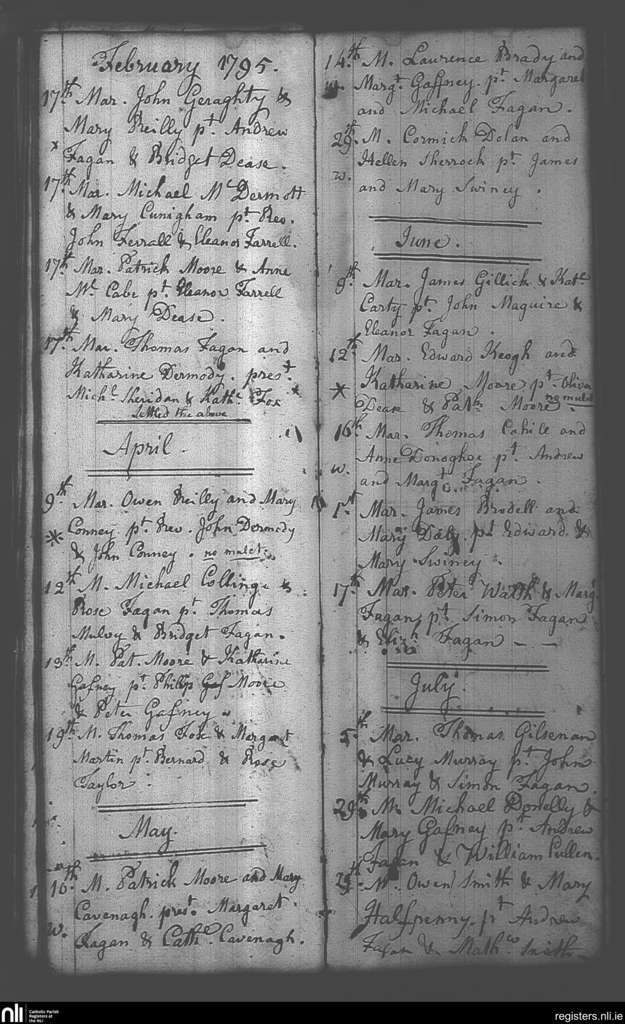 February 1795.
17th Mar. John Geraghty &
Mary Reilly pt. Andrew
x Fagan & Bridget Dease.
17th Mar. Michael McDermott
& Mary Cunigham pt. Rev.
John Ferrall & Eleanor Farrell.
17th Mar. Patrick Moore & Anne
Mc Cabe pt. Eleanor Farrell
& Mary Dease.
17th Mar. Thomas Fagan and
Katharine Dermody. prest.
Michl. Sheridan & Kathe. Fox x
Settled the above
April.
9th Mar. Owen Reilly and Mary
* Conney pt. Rev. John Dermody
& John Conney. no mulct.
12th M. Michael Colling &
Rose Fagan pt. Thomas
Mulvy & Bridget Fagan.
13th M. Pat. Moore & Katharine
Gafney pt. Philip Moore
& Peter Gafney
19th M. Thomas Fox & Margaret
Martin pt. Bernard & Rose
Taylor.
May.
16th M. Patrick Moore and Mary
Cavenagh. prest. Margaret
w. Fagan & Cathe. Cavenagh.
14th M. Laurence Brady and
w. Margt. Gaffney pt. Margaret
and Michael Fagan.
29th M. Cormick Dolan and
Hellen Sherlock pt. James
w. and Mary Swiney.
June.
9th Mar. James Gillick & Kath.
Carty pt. John Maguire &
Eleanor Fagan.
12th Mar. Edward Keogh and
* Katharine Moore pt. Oliver
no mulct
Dease & Patk. Moore.
16th Mar. Thomas Cahill and
Anne Donoghoe pt. Andrew
w. and Margt. Fagan.
1st Mar. James Brodell and
Mary Daly pt. Edward &
Mary Swiney.
17th Mar. Peter Walsh & Marg.
Fagan pt. Simon Fagan
& Fagan - -
July.
5th Mar. Thomas Gilsenan
& Lucy Murray pt. John
Murray & Simon Fagan.
29th M. Michael Donelly &
Mary Gafney pt. Andrew
Fagan & William Cullen.
M. Owen Smith & Mary
Halfpenny. pt. Andrew
Fagan & Mathw. Smith
nli Catholic Parish
Registers at
the NLI
registers.nli.ie